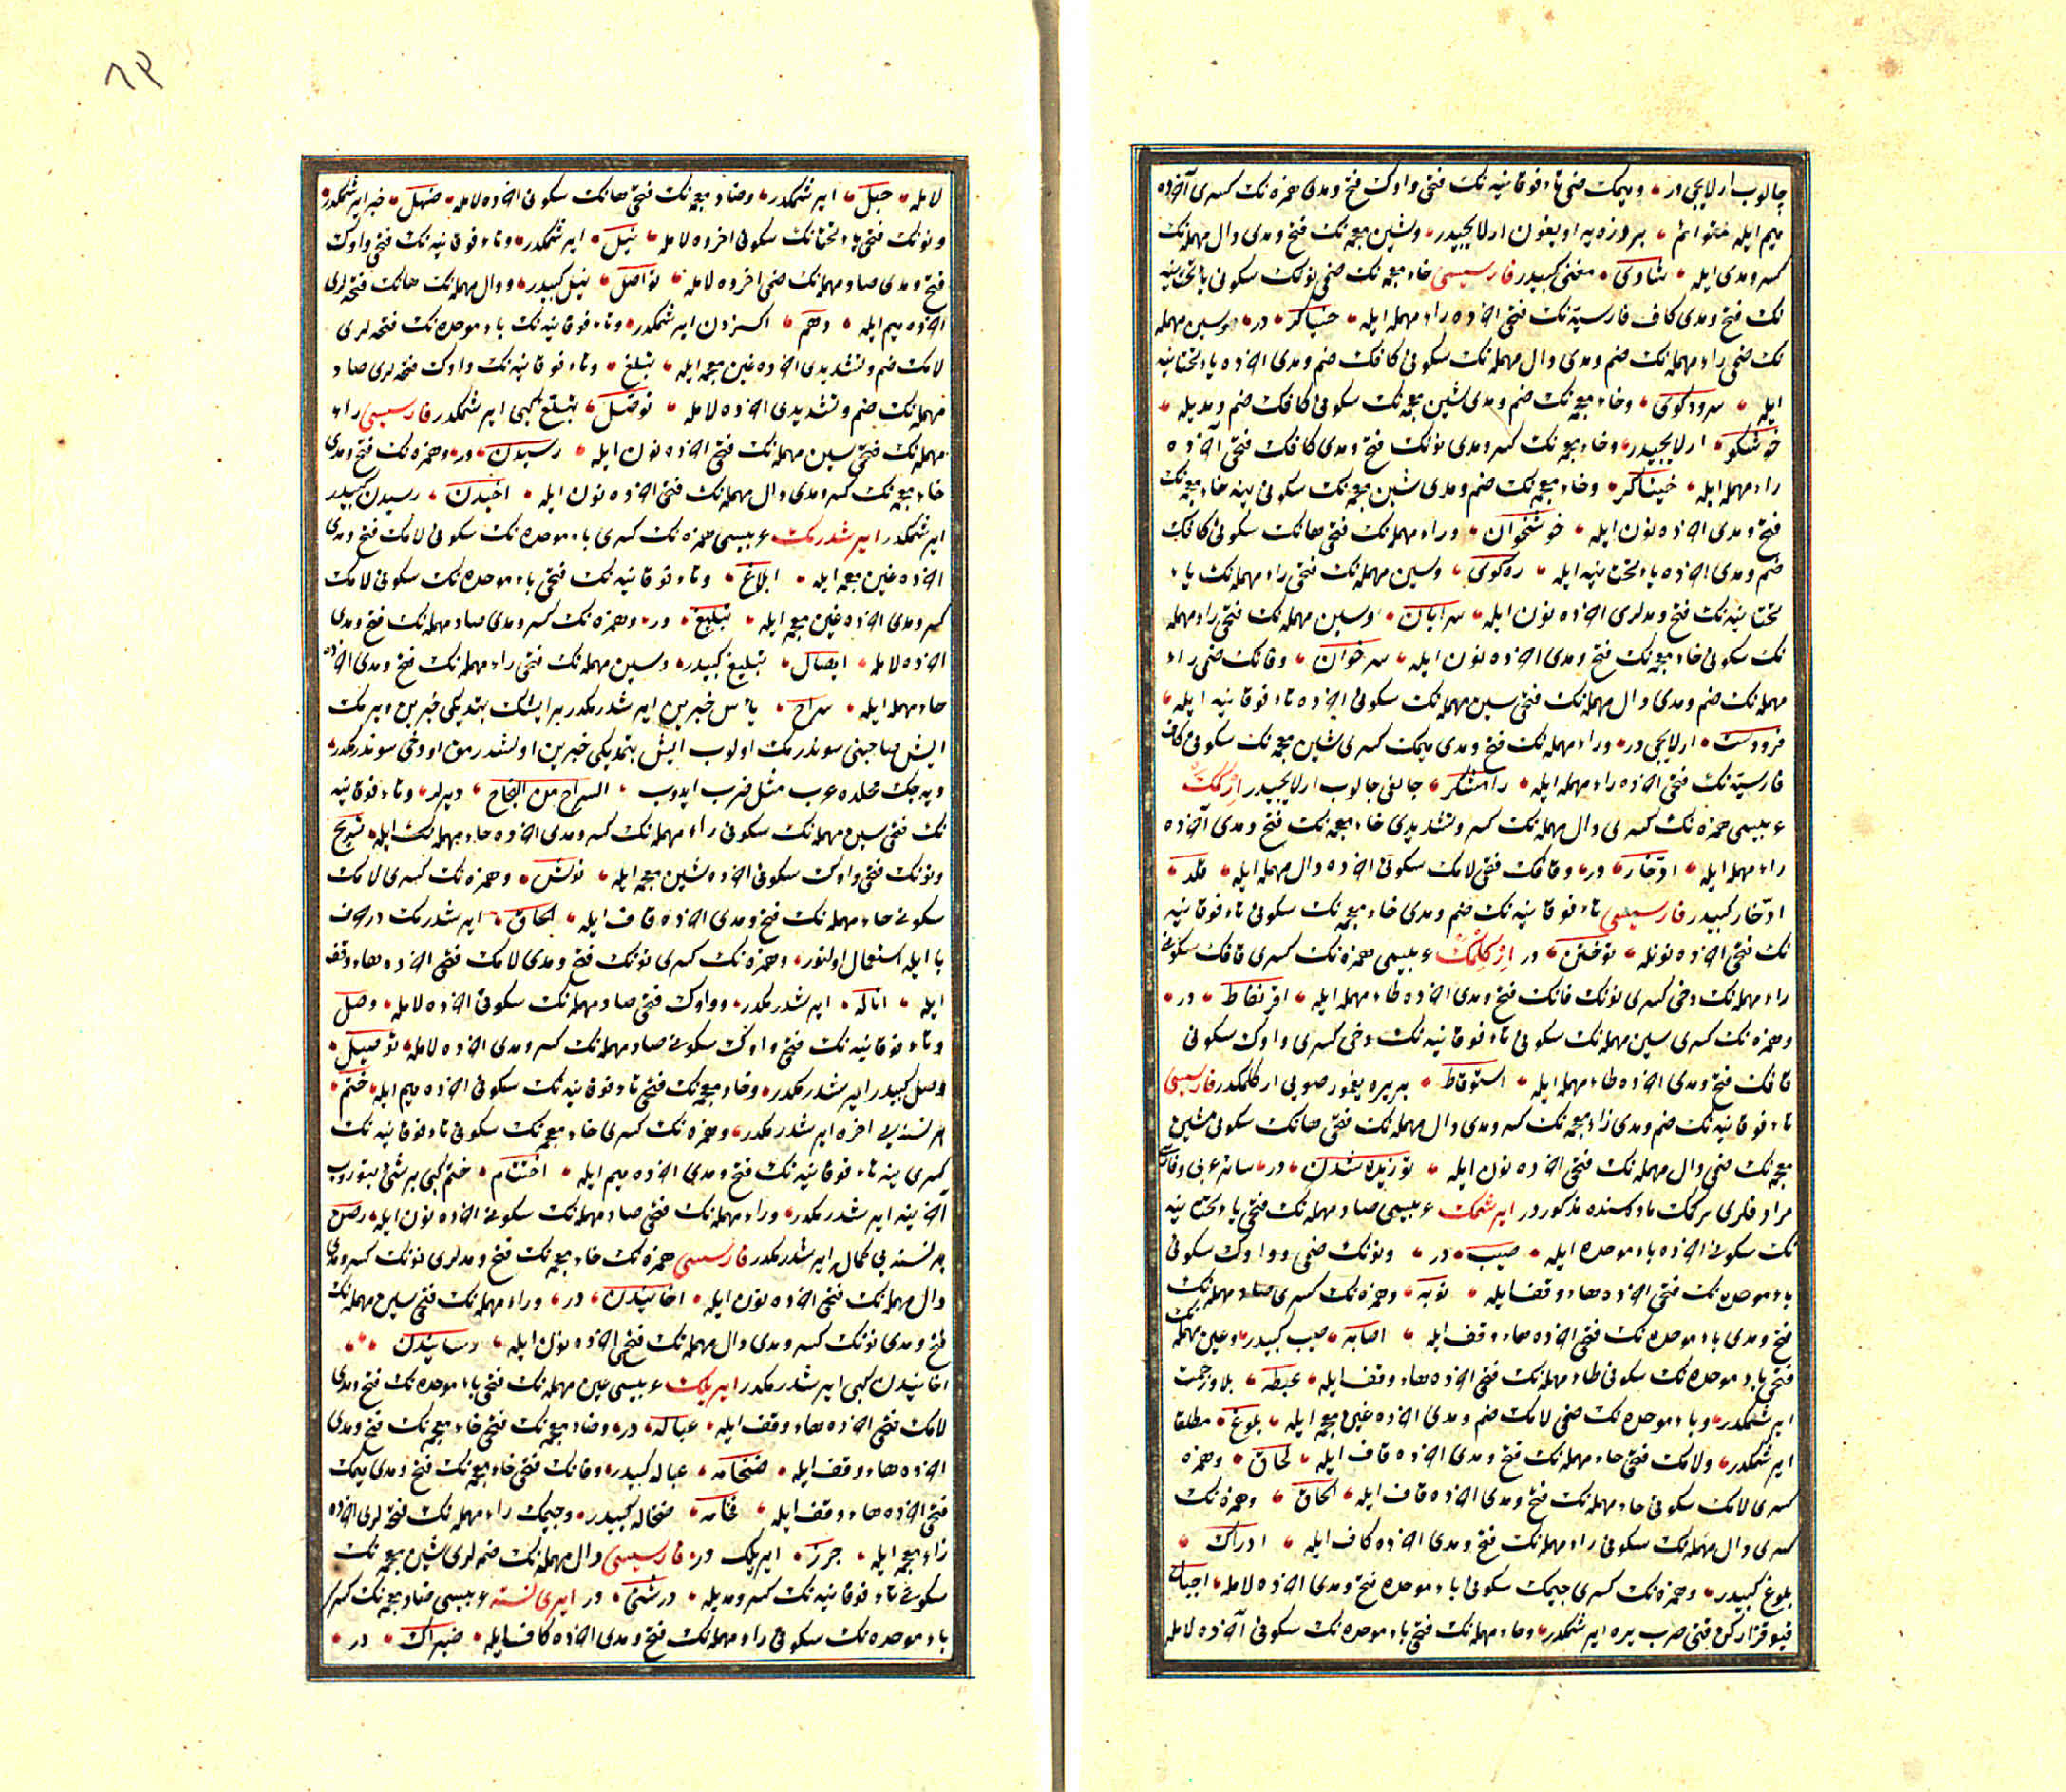 چالوب ارلایجی در، ومیمک ضمی تاء فوقانیه نک فتحی واوک فتح ومدی همزه نک کسری آخرده
میم ایله
کسر ومدی ایله، شاوی، مغنی کبیدر فارسیسی خاء معجمه نک ضمی نونک سکونی یاء تحتانیه
نک فتح ومدی کاف فارسیه نک فتحی اخرده راء مهمله ایله، خنیاگر، در، وسین مهمله
نک ضمی راء مهمله نک ضم ومدی دال مهمله نک سکونی کافک ضم ومدی اخرده یاء تحتانیه
ایله، سرودکوی، وخاء معجمه نک ضم ومدی شین معجمه نک سکونی کافک ضم ومدیله،
خوشکو، ارلایجیدر، وخاء معجمه نک کسر ومدی نونک فتح ومدی کافک فتحی آخرده
راء مهمله ایله، خیناکر، وخاء معجمه نک ضم ومدی شین معجمه نک سکونی ینه خاء معجمه نک
فتح ومدی اخرده نون ایله، خوشخوان، وراء مهمله نک فتحی هانک سکونی کافک
ضم ومدی اخرده یاء تحتانیه ایله، ره کوی، وسین مهمله نک فتحی راء مهمله نک یاء
تحتانیه نک فتح ومدلری اخرده نون ایله، سرایان، وسین مهمله نک فتحی راء مهمله
نک سکونی خاء معجمه نک فتح ومدی اخرده نون ایله، سرخوان، وفانک ضمی راء
مهمله نک ضم ومدی دال مهمله نک فتحی سین مهمله نک سکونی اخرده تاء فوقانیه ایله،
فرودست، ارلایجی در، وراء مهمله نک فتح ومدی میمک کسری شین معجمه نک سکونی کاف
فارسیه نک فتحی اخرده راء مهمله ایله، رامشکر، چالغی چالوب ارلایجیدر
عربیسی همزه نک کسری دال مهمله نک کسر وتشدیدی خاء معجمه نک فتح ومدی آخرده
راء مهمله ایله، ادّخار، در، وقافک فتحی لامک سکونی اخرده دال مهمله ایله، قلد،
ادّخار کبیدر فارسیسی تاء فوقانیه نک ضم ومدی خاء معجمه نک سکونی تاء فوقانیه
نک فتحی اخرده نونله، توختن، در ارکلمک عربیسی همزه نک کسری قافک سکونی
راء مهمله نک دخی کسری نونک فانک فتح ومدی اخرده طاء مهمله ایله، اقرنفاط، در،
وهمزه نک کسری سین مهمله نک سکونی تاء فوقانیه نک دخی کسری واوک سکونی
قافک فتح ومدی اخرده طاء مهمله ایله، استوقاط، بر یره یغمور صویی ارکلمکدر فارسیسی
تاء فوقانیه نک ضم ومدی زاء معجمه نک کسر ومدی دال مهمله نک فتحی هانک سکونی شین
معجمه نک ضمی دال مهمله نک فتحی اخرده نون ایله، توزیده شدن، در، سائر عربی وفارسی
مرادفلری برکمک ماده سنده مذکوردر ایرشمک عربیسی صاد مهمله نک فتحی یاء تحتانیه
نک سکونی اخرده باء موحده ایله، صیب، در، ونونک ضمی وواوک سکونی
باء موحده نک فتحی اخرده هاء وقف ایله، نوبه، وهمزه نک کسری صاد مهمله نک
فتح ومدی باء موحده نک فتحی اخرده هاء وقف ایله، اصابه، صیب کبیدر، وعین مهمله نک
فتحی باء موحده نک سکونی طاء مهمله نک فتحی اخرده هاء وقف ایله، عبطه، بلا وزحمت
ایرشمکدر، وباء موحده نک ضمی لامک ضم ومدی اخرده غین معجمه ایله، بلوغ، مطلقا
ایرشمکدر، ولامک فتحی حاء مهمله نک فتح ومدی اخرده قاف ایله، لحاق، وهمزه
کسری لامک سکونی حاء مهمله نک فتح ومدی اخرده قاف ایله، الحاق، وهمزه نک
کسری دال مهمله نک سکونی راء مهمله نک فتح ومدی اخرده کاف ایله، ادراک،
بلوغ کبیدر، وهمزه نک کسری جیمک سکونی باء موحده فتح ومدی اخرده لامله، اجبال
قیو قزارکن قتی یره ایرشمکدر، وحاء مهمله نک فتحی باء موحده نک سکونی آخرده لامله
۶۴
لامله، حبل، ایرشمکدر، وضاد معجمه نک فتحی هانک سکونی اخرده لامله، ضهل، خبر ایرشمکدر،
ونونک فتحی یاء تحتانک سکونی اخرده لامله، نیل، ایرشمکدر، وتاء فوقانیه نک فتحی واوک
فتح ومدی صاد مهمله نک ضمی اخرده لامله، تواصل، نیل کبیدر، ودال مهمله نک هانک فتحه لری
اخرده میم ایله، دهم، اکسزدن ایرشمکدر، وتاء فوقانیه نک باء موحده نک فتحه لری
لامک ضم وتشدیدی اخرده غین معجمه ایله، تبلغ، وتاء فوقانیه نک واوک فتحه لری صاد
مهمله نک ضم وتشدیدی اخرده لامله، توصل، تبلغ کبی ایرشمکدر فارسیسی راء
مهمله نک فتحی سین مهمله نک فتحی اخرده نون ایله، رسیدن، در، وهمزه نک فتح ومدی
خاء معجمه نک کسر ومدی دال مهمله نک فتحی اخرده نون ایله، اخیدن، رسیدن کبیدر
ایرشمکدر ایرشدرمک عربیسی همزه نک کسری باء موحده نک سکونی لامک فتح ومدی
اخرده غین معجمه ایله، ابلاغ، وتاء فوقانیه نک فتحی باء موحده نک سکونی لامک
کسر ومدی اخرده غین معجمه ایله، تبلیغ، در، وهمزه نک کسر ومدی صاد مهمله نک فتح ومدی
اخرده لامله، ایصال، تبلیغ کبیدر، وسین مهمله نک فتحی راء مهمله نک فتح ومدی اخرده
حاء مهمله ایله، سراح، یأس خبرین ایرشدرمکدر بر ایشک بتمدیکی خبرین ویرمک
ایش صاحبنی سوندرمک اولوب ایش بتمدیکی خبرین اولشدرمق اودخی سوندرمکدر،
دیه جک محلده عرب مثل ضرب ایدوب، السراح من النجاح، دیرلر، وتاء فوقانیه
نک فتحی سین مهمله نک سکونی راء مهمله نک کسر ومدی اخرده حاء مهمله ایله، تسریح
ونونک فتحی واوک سکونی اخرده شین معجمه ایله، نوش، وهمزه نک کسری لامک
سکونی حاء مهمله نک فتح ومدی اخرده قاف ایله، الحاق، ایرشدرمک در حرف
با ایله استعمال اولنور، وهمزه نک کسری نونک فتح ومدی لامک فتحی اخرده هاء وقف
ایله، اناله، ایرشدرمکدر، وواوک فتحی صاد مهمله نک سکونی اخرده لامله، وصل
وتاء فوقانیه نک فتحی واوک سکونی صاد مهمله نک کسر ومدی اخرده لامله، توصیل،
وصل کبیدر ایرشدرمکدر، وخاء معجمه نک فتحی تاء فوقانیه نک سکونی اخرده میم ایله، ختم،
بر نسنه یی اخره ایرشدرمکدر، وهمزه نک کسری خاء معجمه نک سکونی تاء فوقانیه نک
کسری ینه تاء فوقانیه نک فتح ومدی اخرده میم ایله، اختتام، ختم کبی بر شئی بتوروب
آخرینه ایرشدرمکدر، وراء مهمله نک فتحی صاد مهمله نک سکونی اخرده نون ایله، رصن
بر نسنه یی کماله ایرشدرمکدر فارسیسی همزه نک خاء معجمه نک فتح ومدلری نونک کسر ومدی
دال مهمله نک فتحی اخرده نون ایله، اخانیدن، در، وراء مهمله نک فتحی سین مهمله نک
فتح ومدی نونک کسر ومدی دال مهمله نک فتحی اخرده نون ایله، رسانیدن،
اخانیدن کبی ایرشدرمکدر ایریلک عربیسی عین مهمله نک فتحی باء موحده نک فتح ومدی
لامک فتحی اخرده هاء وقف ایله، عباله، در، وضاد معجمه نک فتحی خاء معجمه نک فتح ومدی
اخرده هاء وقف ایله، ضخامه، عباله کبیدر، وفانک فتحی خاء معجمه نک فتح ومدی میمک
فتحی اخرده هاء وقف ایله، فخامه، کبیدر، وجیمک راء مهمله نک فتحه لری اخرده
زاء معجمه ایله، جرز، ایریلک در، فارسیسی دال مهمله نک ضمه لری شین معجمه نک
سکونی تاء فوقانیه نک کسر ومدیله، درشتی، در ایری نسنه عربیسی ضاد معجمه نک کسری
باء موحده نک سکونی راء مهمله نک فتح ومدی اخرده کاف ایله، ضبراک، در،